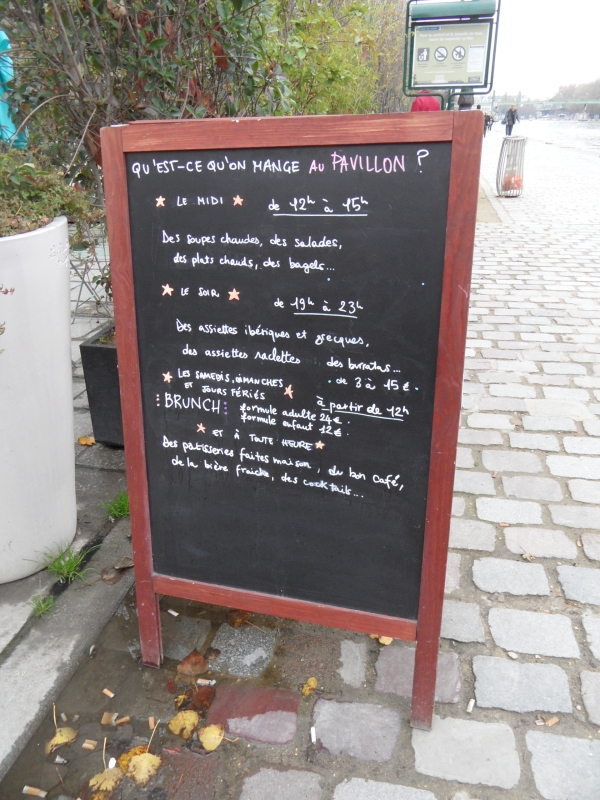 QU'EST-CE QU'ON MANGE AU PAVILLON ?
LE MIDI de 12h à 15h
Des soupes chaudes, des salades,
des plats chauds, des bagels...
LE SOIR de 19h à 23h
Des assiettes ibériques et grecques,
des assiettes raclettes des burratas...
de 3 à 15 €.
LES SAMEDIS, DIMANCHES
ET JOURS FÉRIÉS à partir de 12h
BRUNCH : formule adulte 24€.
formule enfant 12€.
ET À TOUTE HEURE
Des patisseries faites maison, du bon café,
de la bière fraîche, des cocktails...